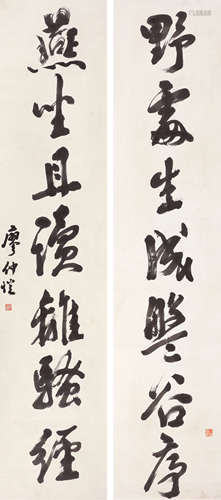 野處生成盤谷序
燕坐且讀離騷經
廖仲愷